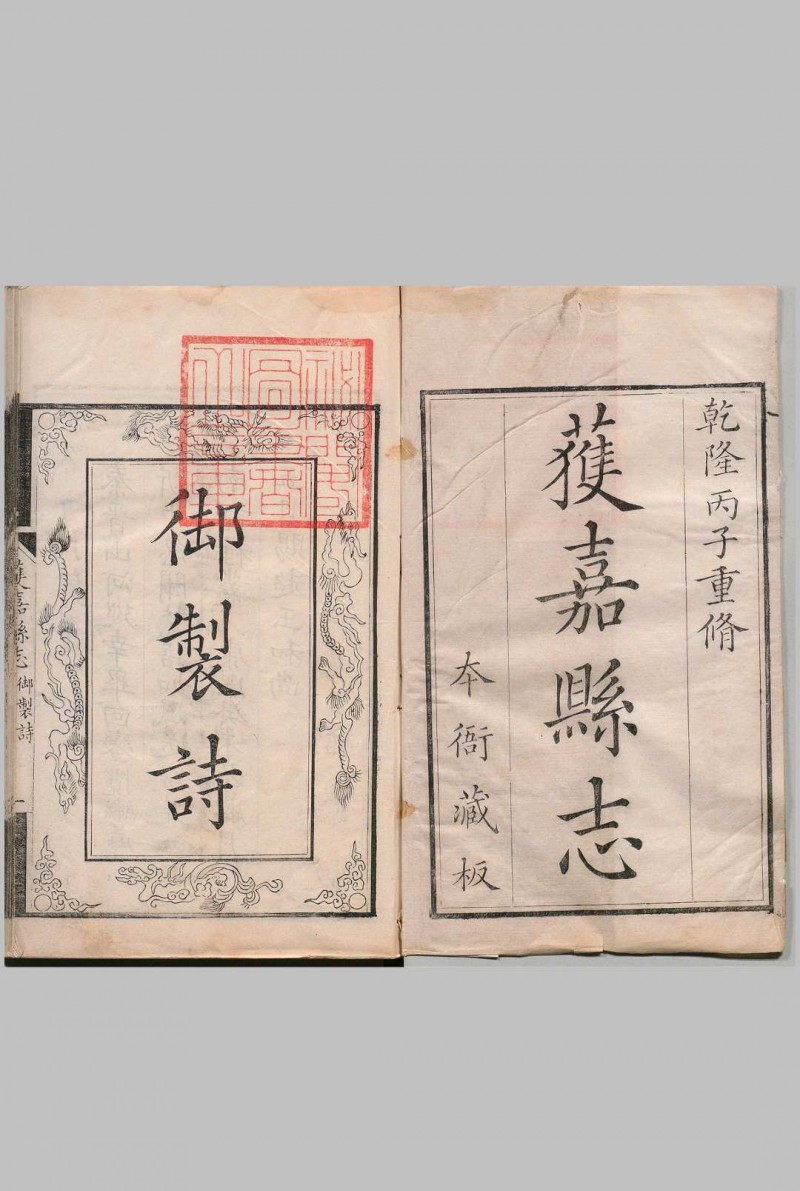 乾隆丙子重脩
獲嘉縣志
本衙藏板
御製詩
獲嘉縣志
御製詩
一